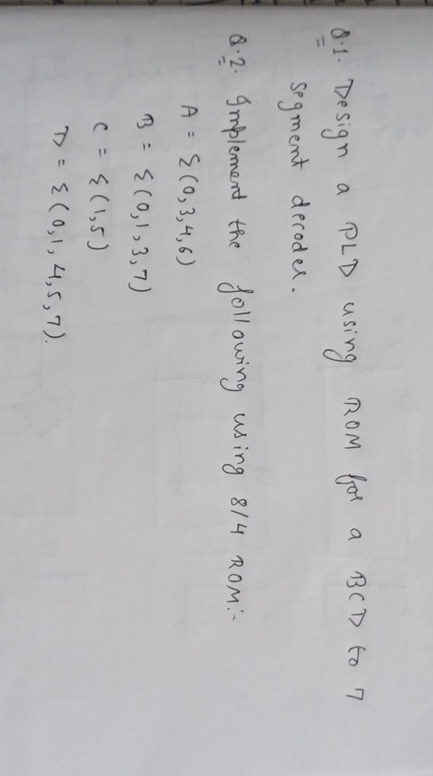 Q.1. Design a PLD using ROM for a BCD to 7
segment decoder.
Q.2. Implement the following using 8/4 ROM:-
A = Σ(0,3,4,6)
B = Σ(0,1,3,7)
C = Σ(1,5)
D = Σ(0,1,4,5,7).